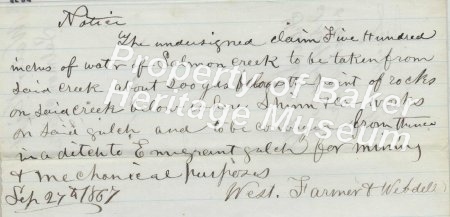 Notice
The undersigned claim Five Hundred
inches of water of Salmon creek to be taken from
said creek about 200 yds above point of rocks
on said creek
on said gulch and to be from thence
in a ditch to Emigrant gulch for mining
& mechanical purposes
Sep 27th 1867 West. Farmer & Webdell
Property of Baker
Heritage Museum